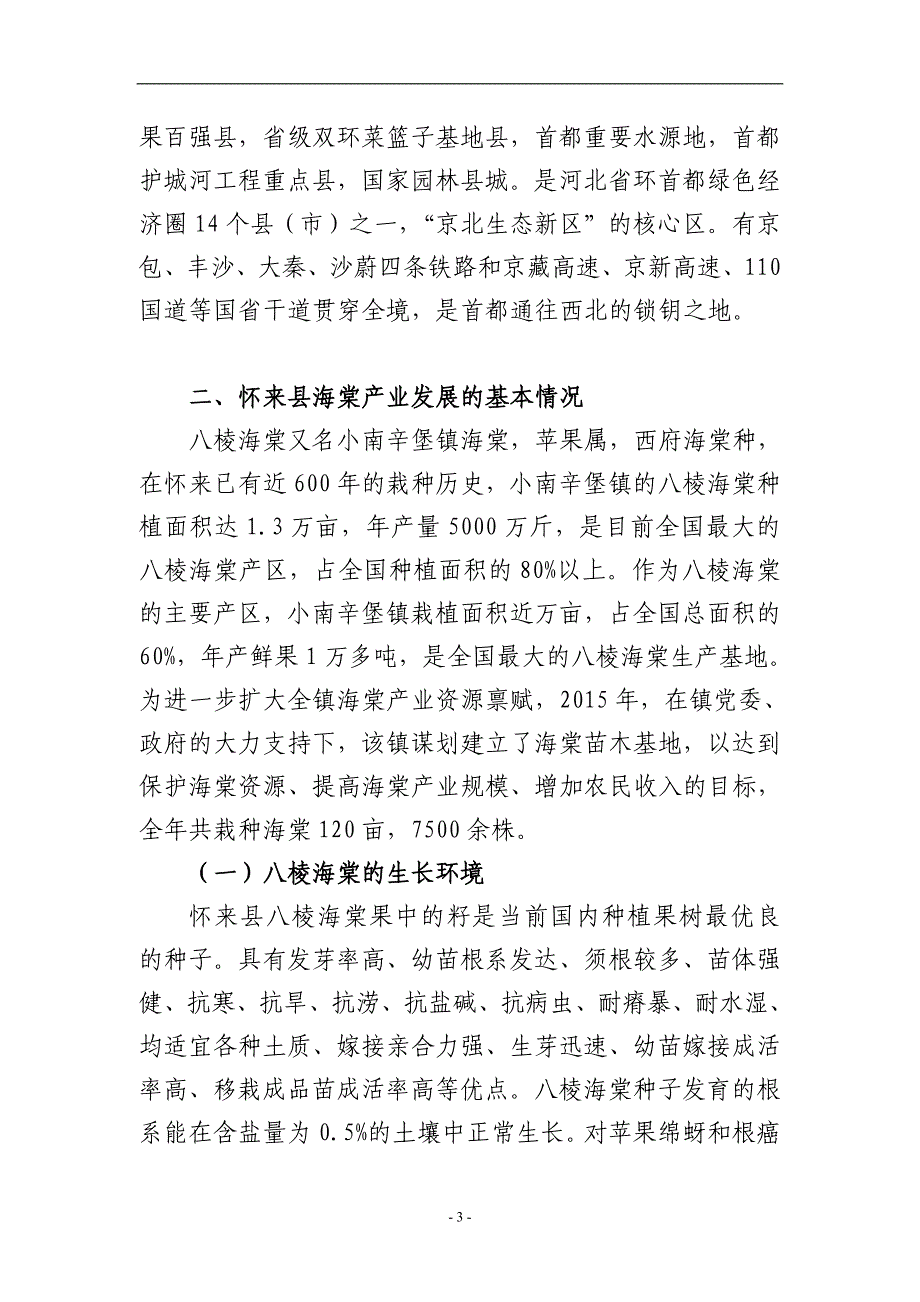 果百强县，省级双环菜篮子基地县，首都重要水源地，首都
护城河工程重点县，国家园林县城。是河北省环首都绿色经
济圈 14 个县（市）之一，“京北生态新区”的核心区。有京
包、丰沙、大秦、沙蔚四条铁路和京藏高速、京新高速、110
国道等国省干道贯穿全境，是首都通往西北的锁钥之地。
二、怀来县海棠产业发展的基本情况
八棱海棠又名小南辛堡镇海棠，苹果属，西府海棠种，
在怀来已有近 600 年的栽种历史，小南辛堡镇的八棱海棠种
植面积达 1.3 万亩，年产量 5000 万斤，是目前全国最大的
八棱海棠产区，占全国种植面积的 80%以上。作为八棱海棠
的主要产区，小南辛堡镇栽植面积近万亩，占全国总面积的
60%，年产鲜果 1 万多吨，是全国最大的八棱海棠生产基地。
为进一步扩大全镇海棠产业资源禀赋，2015 年，在镇党委、
政府的大力支持下，该镇谋划建立了海棠苗木基地，以达到
保护海棠资源、提高海棠产业规模、增加农民收入的目标，
全年共栽种海棠 120 亩，7500 余株。
（一）八棱海棠的生长环境
怀来县八棱海棠果中的籽是当前国内种植果树最优良
的种子。具有发芽率高、幼苗根系发达、须根较多、苗体强
健、抗寒、抗旱、抗涝、抗盐碱、抗病虫、耐瘠暴、耐水湿、
均适宜各种土质、嫁接亲合力强、生芽迅速、幼苗嫁接成活
率高、移栽成品苗成活率高等优点。八棱海棠种子发育的根
系能在含盐量为 0.5%的土壤中正常生长。对苹果绵蚜和根癌
- 3 -